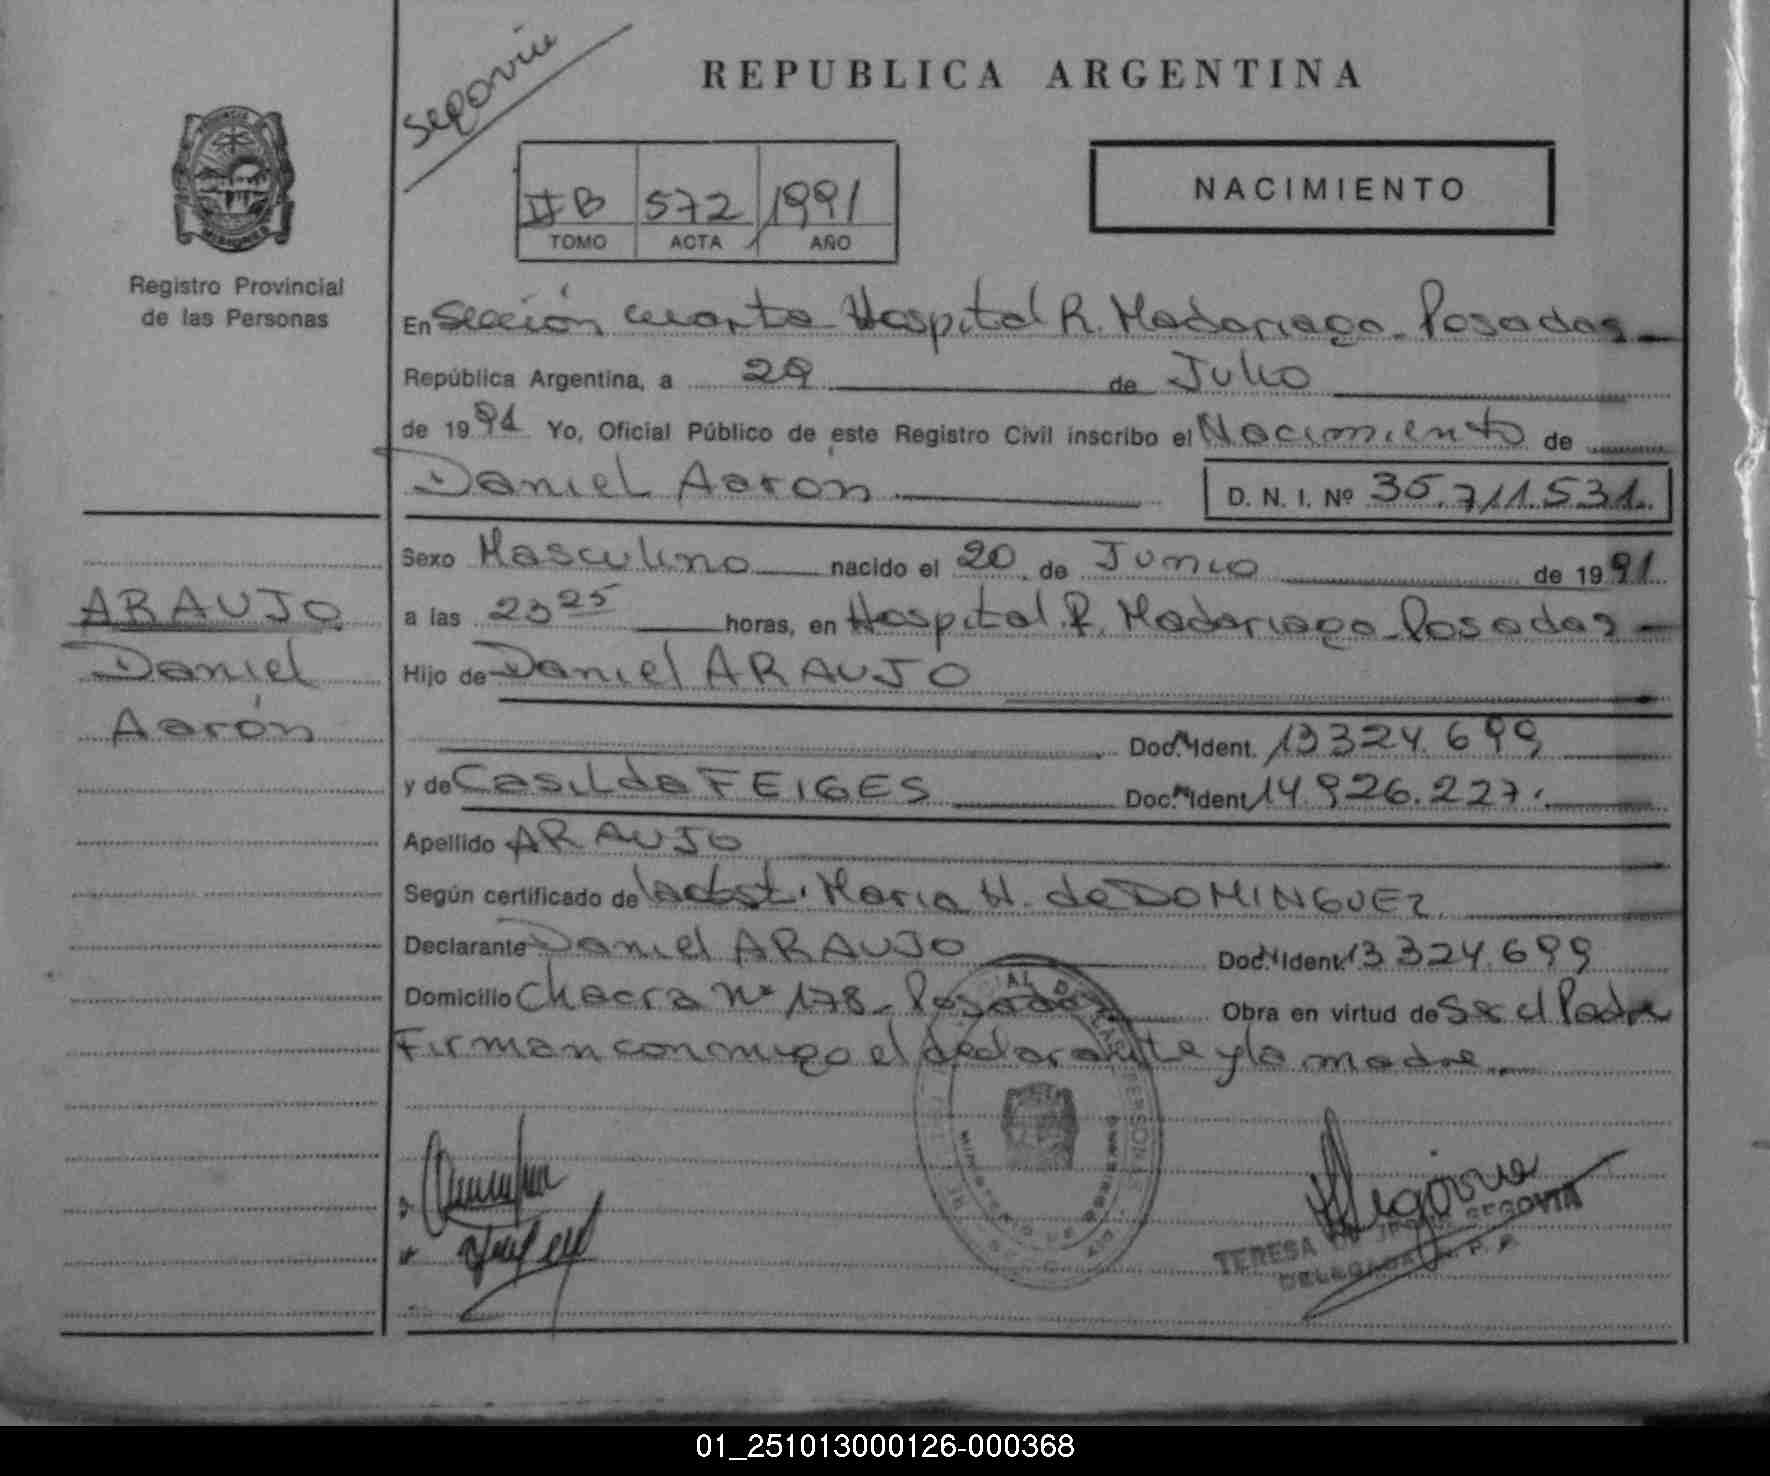 Segovia
REPUBLICA ARGENTINA
NACIMIENTO
II B 572 1991
TOMO ACTA AÑO
MISIONES
Registro Provincial
de las Personas
En Sección cuarta Hospital R. Madariaga - Posadas
República Argentina, a 29 de Julio
de 1991 Yo, Oficial Público de este Registro Civil inscribo el Nacimiento de
Daniel Aarón D. N. I. Nº 35.711.531.
Sexo Masculino nacido el 20 de Junio de 1991
a las 23 25 horas, en Hospital R. Madariaga - Posadas
Hijo de Daniel ARAUJO
Doc. Nº Ident. 13 324. 699
y de Casilda FEIGES Doc. Nº Ident 14 926.227.
Apellido ARAUJO
Según certificado de la obst. Maria H. de DOMINGUEZ
Declarante Daniel ARAUJO Doc. Nº Ident. 13 324.699
Domicilio Chacra Nº 178 - Posadas Obra en virtud de Sx el Padre
Firman conmigo el declarante y la madre
ARAUJO
Daniel
Aarón
TERESA SEGOVIA
DELEGADA R. P. P.
01_251013000126-000368